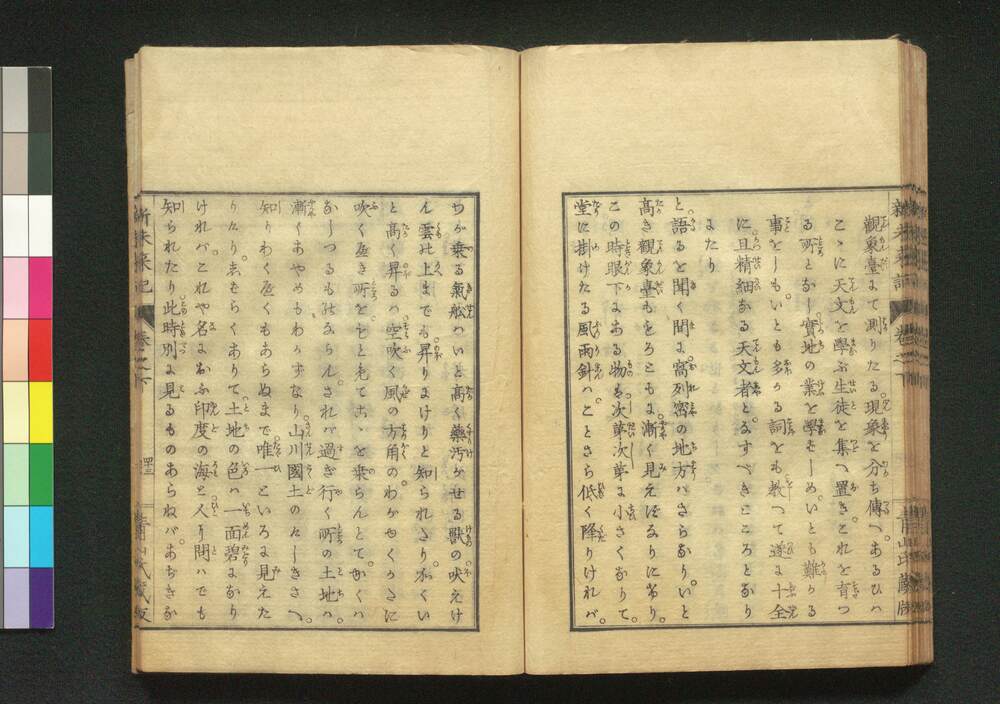 觀象臺にて測りたる現象を分ち傳へ。あるひハ
こゝに天文を學ぶ生徒を集へ置き。これを育つ
る所となし實地の業を學しめ。いとも難かる
事をしもいとも多かる詞をも教へて遂に十全
に且精細なる天文者となすべきところとなり
よたり
と。語ると聞く間に窩列窩の地方ハさらなり。いと
高き觀象臺もをろともに漸く見えはなりにけり。
この時眼下にある物も次第次第に小さくなりて。
堂に掛けたる風雨針ハ。ことさら低く降りけれバ。
わが乗る氣舩ハいと高く藥汚がせる獸の吠えけ
ん雲の上までも昇りにけりと知られたり。かくい
と高く昇るハ空吹く風の方角のわがゆくかたに
吹くべき所をもとめてこゝを乗らんとてかくハ
なしつるものならん。されバ過ぎ行く所の土地ハ。
漸くあやめもわかずなり。山川國土のたしきさへ。
知りわくべくもあらぬまで唯一といろに見えた
りたり。志ばらくありて。土地の色ハ一面碧になり
けれバ。これや名におふ印度の海と人々問ハでも
知られたり此時別に見るものあらねバ。あぢきな
新未来記
卷之下
青山氏藏版
新未来記
卷之下
青山氏藏版